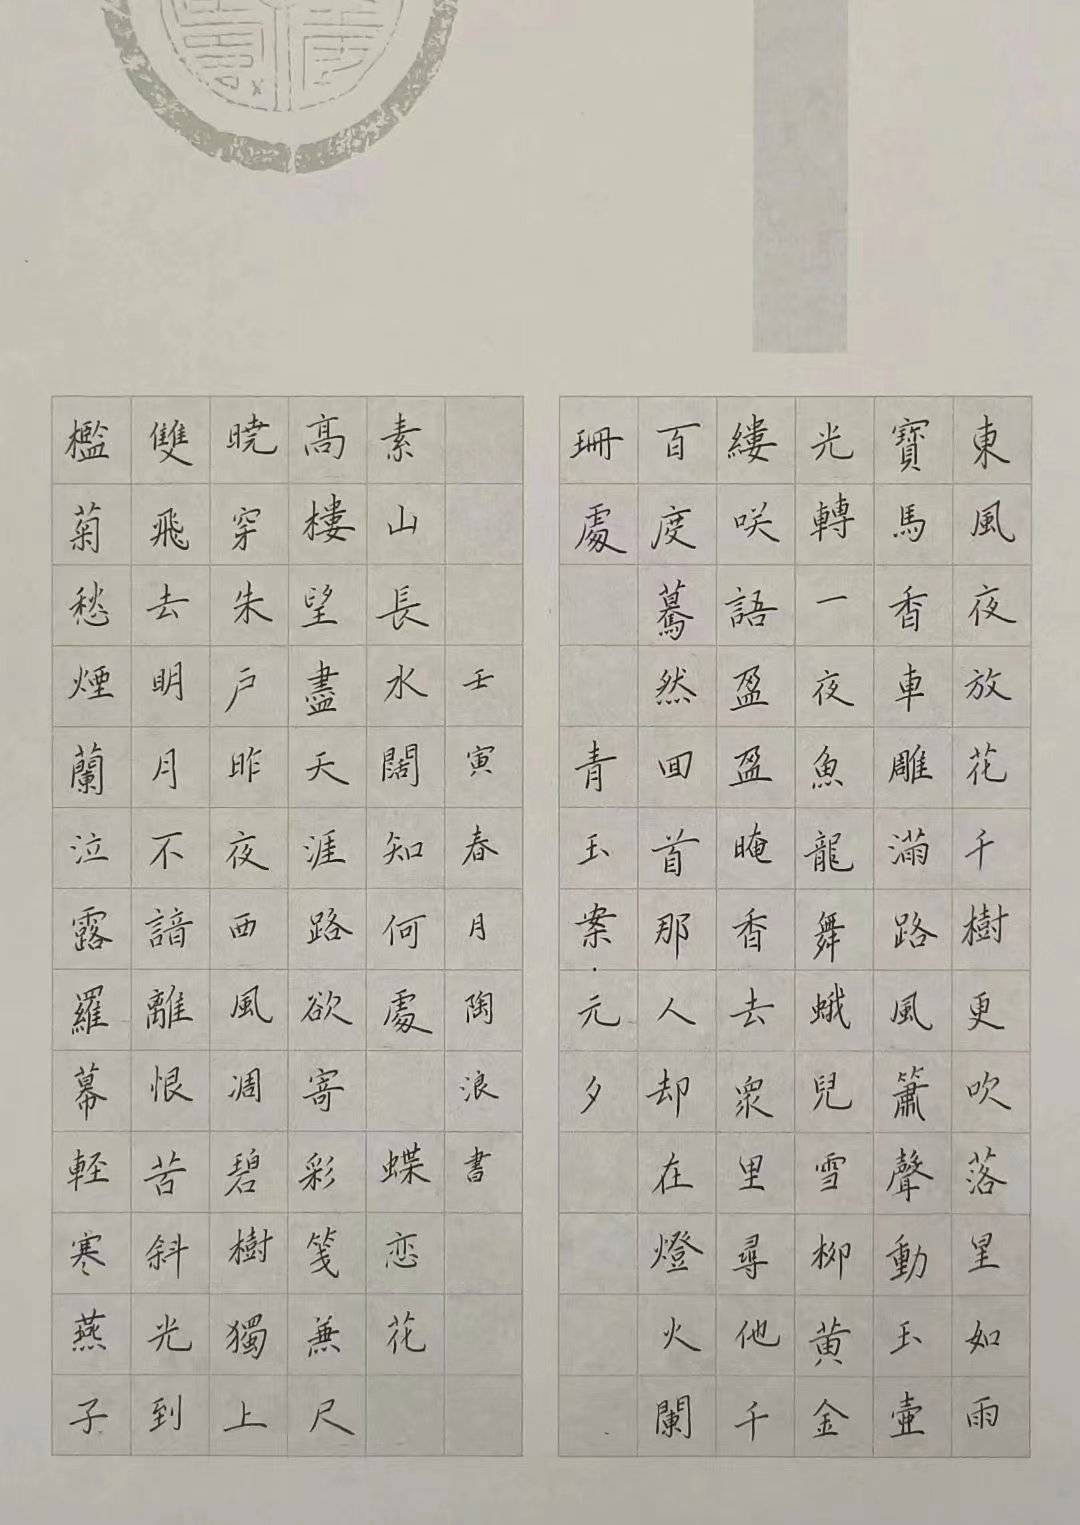 東風夜放花千樹更吹落星如雨
寶馬香車雕滿路風簫聲動玉壺
光轉一夜魚龍舞蛾兒雪柳黄金
縷咲語盈盈晻香去衆里尋他千
百度驀然回首那人却在燈火闌
珊處 青玉案·元夕
檻菊愁煙蘭泣露羅幕輕寒燕子
雙飛去明月不諳離恨苦斜光到
曉穿朱户昨夜西風凋碧樹獨上
高樓望盡天涯路欲寄彩箋兼尺
素山長水闊知何處 蝶恋花
壬寅春月陶浪書